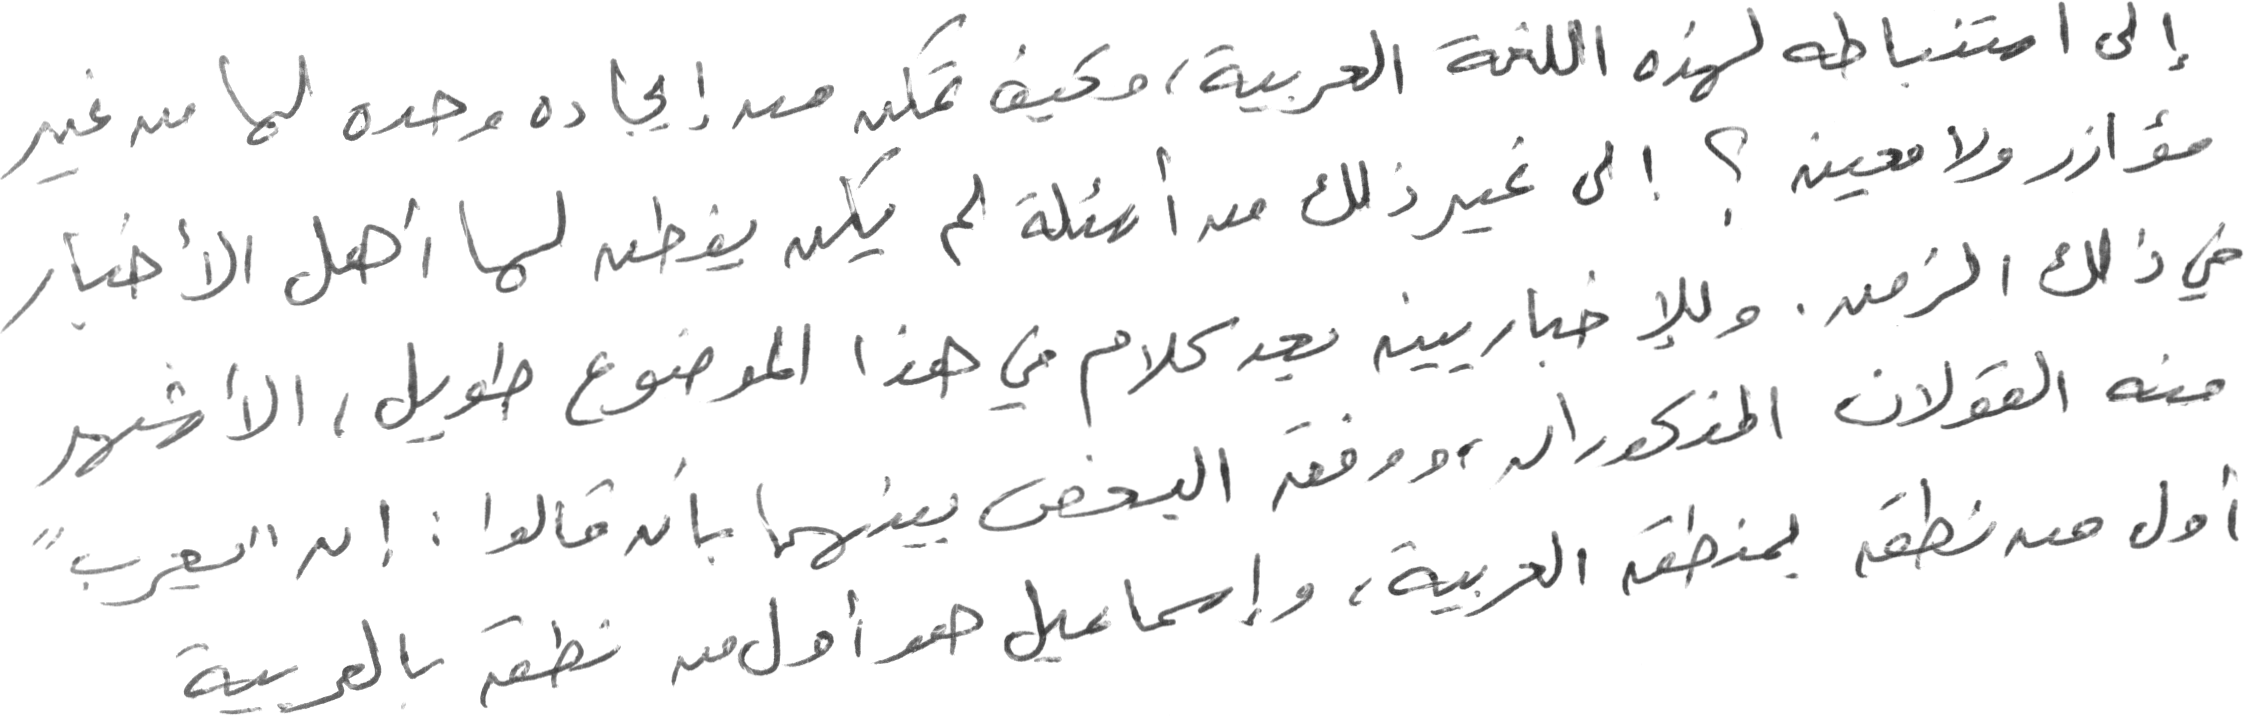 إلى استنباطه لهذه اللغة العربية، وكيف تمكن من إيجاده وحده لها من غير
مؤازر ولا معين؟ إلى غير ذلك من أسئلة لم يكن يفطن لها أهل الأخبار
في ذلك الزمن. وللإخباريين بعد كلام في هذا الموضوع طويل، الأشهر
منه القولان المذكوران، ووفق البعض بينهما بأن قالوا: إن "يعرب"
أول من نطق بمنطق العربية، وإسماعيل هو أول من نطق بالعربية